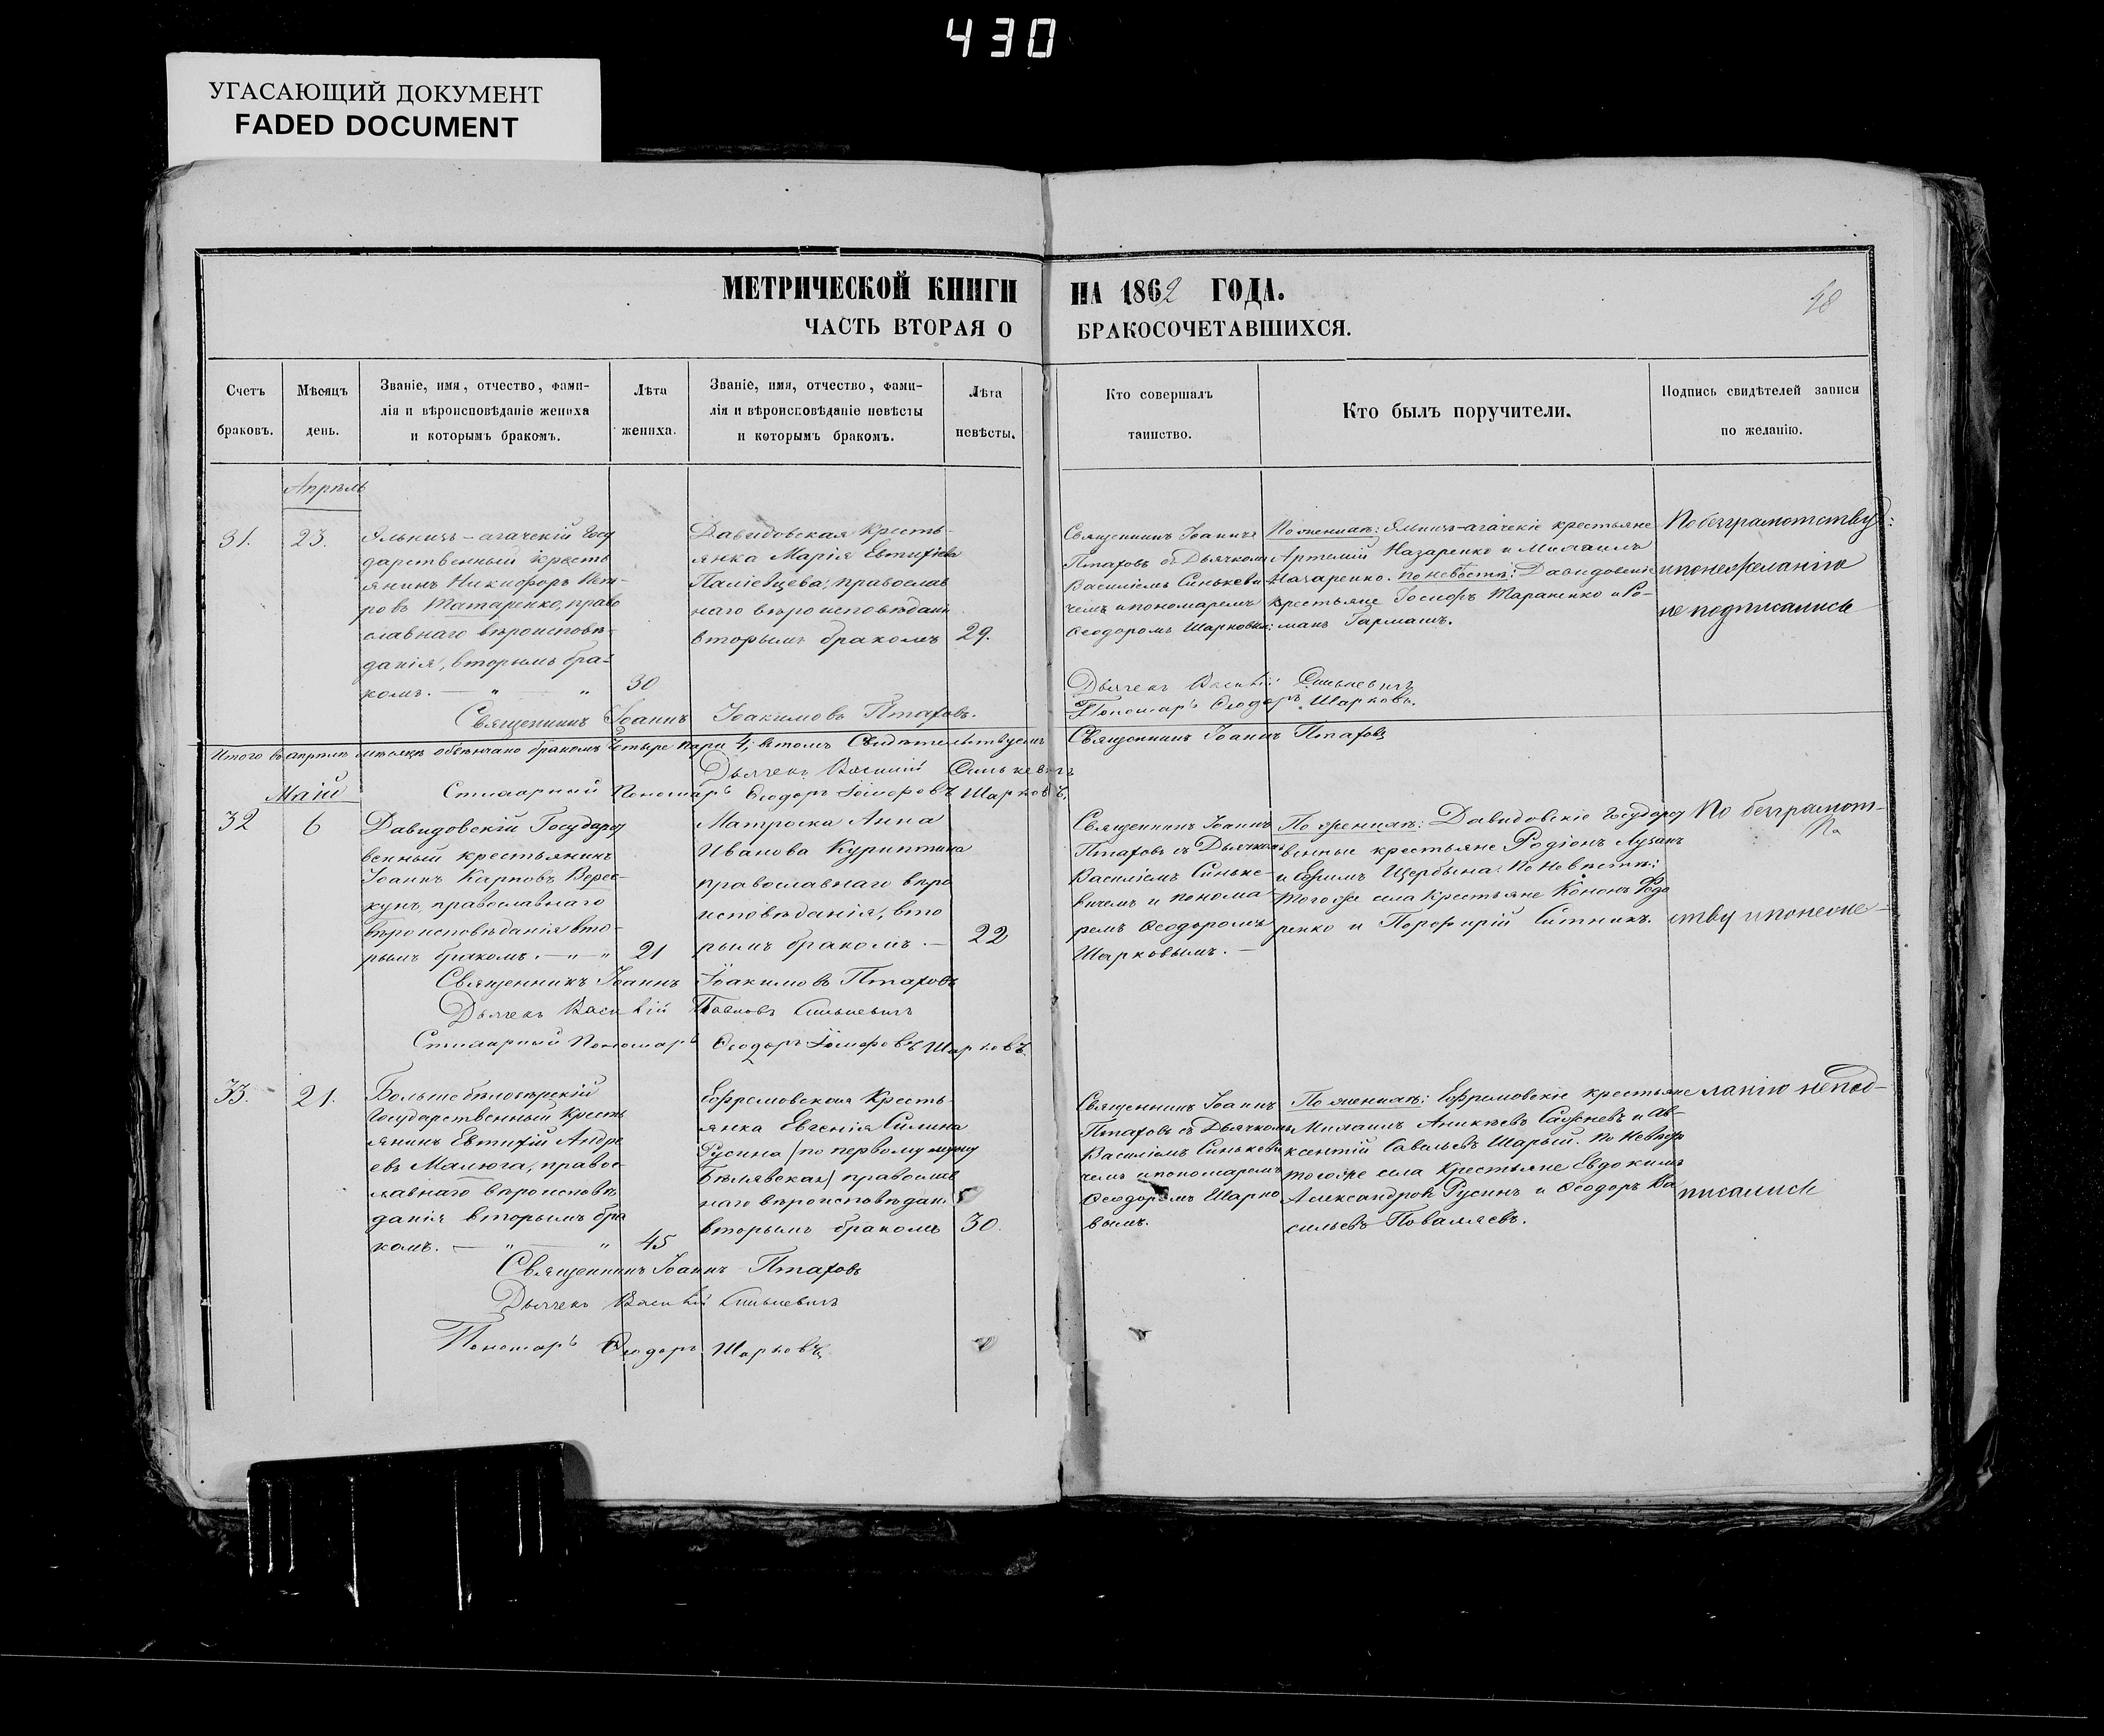 430
УГАСАЮЩИЙ ДОКУМЕНТ
FADED DOCUMENT
МЕТРИЧЕСКОЙ КНИГИ НА 1862 ГОДА.
ЧАСТЬ ВТОРАЯ О БРАКОСОЧЕТАВШИХСЯ.
48
Счетъ
браковъ.
Мѣсяцъ
день.
Званіе, имя, отчество, фами-
лія и вѣроисповѣданіе жениха
и которымъ бракомъ.
Лѣта
жениха.
Званіе, имя, отчество, фами-
лія и вѣроисповѣданіе невѣсты
и которымъ бракомъ.
Лѣта
невѣсты.
Кто совершалъ
таинство.
Кто былъ поручители.
Подпись свидѣтелей записи
по желанію.
Апрѣль
31.
23.
Яльничъ-агачскій Госу
дарственный кресть
янинъ Никифоръ Пет-
ровъ Татаренко, право
славнаго вѣроисповѣ-
данія, вторымъ бра-
комъ. — " — "
30
Давидовская Кресть-
янка Марія Евтихіева
православ
наго вѣроисповѣдан
вторымъ бракомъ
29.
Священникъ Іоаннъ
Птаховъ съ Дьячкомъ
Василіемъ Синькеви-
чемъ и пономаремъ
Ѳеодоромъ Шарковым:
По женихѣ: Яльничъ-агачскіе крестьяне
Артемій Назаренко и Михаилъ
Назаренко. по невѣстѣ: Давидовскіе
крестьяне Іосифъ Тараненко и Ро-
манъ Гармашъ.
По безграмотству:
и по нежеланію
не подписались
Священникъ Іоаннъ Іоакимовъ Птаховъ.
Дьячекъ Василій Синькевичъ
Пономарь Ѳеодоръ Шарковъ.
Итого въ апрѣлѣ мѣсяцѣ обвѣнчано бракомъ Четыре пари 4, въ томъ Свидѣтельствуемъ Священникъ Іоаннъ Птаховъ
Дьячекъ Василій Синькевичъ
Стихарный Пономарь Ѳеодоръ Іосифовъ Шарковъ.
Маій
32
6
Давидовскій Государс
венный крестьянинъ
Іоаннъ Карповъ Верес-
кунъ, православнаго
вѣроисповѣданія вто-
рымъ бракомъ. — " — "
21
Матроска Анна
Иванова Куриптина
православнаго вѣро
исповѣданія, вто
рымъ бракомъ. —
22
Священникъ Іоаннъ
Птаховъ съ Дьячкомъ
Василіемъ Синьке-
вичемъ и понома-
ремъ Ѳеодоромъ
Шарковымъ. —
По женихѣ: Давидовскіе Государс
венные крестьяне Родіонъ Лузанъ
и Ефимъ Щербына. По Невѣстѣ:
Того же села Крестьяне Кононъ Федо
ренко и Порфирій Ситникъ.
По безграмот-
ству и по неже-
Священникъ Іоаннъ Іоакимовъ Птаховъ
Дьячекъ Василій Павловъ Синькевичъ
Стихарный Пономарь Ѳеодоръ Іосифовъ Шарковъ.
33.
21.
Больше бѣлозѣрскій
Государственный Кресть
янинъ Евтихій Андре
евъ Малюга, правос
лавнаго вѣроисповѣ
данія вторымъ бра
комъ. — " — "
45
Ефремовская Кресть-
янка Евгенія Силина
Русина /по первому мужу
Бѣлявская/ православ
наго вѣроисповѣдан.
вторымъ бракомъ
30.
Священникъ Іоаннъ
Птаховъ съ Дьячкомъ
Василіемъ Синькеви
чемъ и пономаремъ
Ѳеодоромъ Шарко
вымъ.
По женихѣ: Ефремовскіе крестьяне
Михаилъ Аникѣевъ и Ав-
ксентій Савельевъ Шарый. по Невѣстѣ
того же села Крестьяне Евдокимъ
Александровъ Русинъ и Ѳеодоръ Ва
сильевъ Поваляевъ.
ланію не под-
писались
Священникъ Іоаннъ Птаховъ
Дьячекъ Василій Синькевичъ
Пономарь Ѳеодоръ Шарковъ